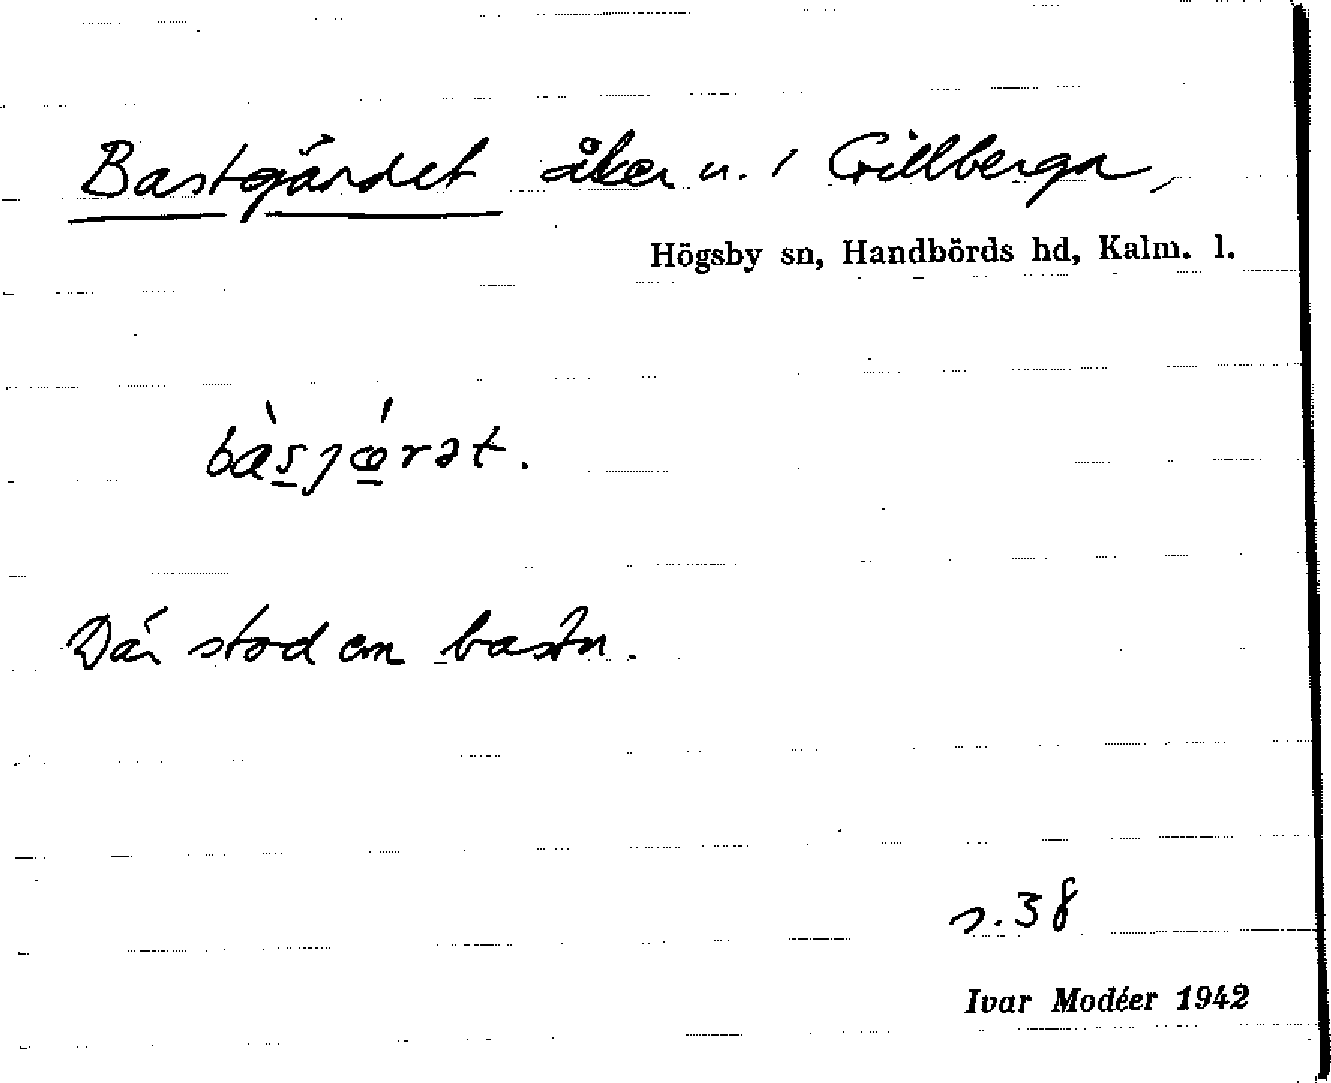 Bastgärdet åker u. / Gillberga,
Högsby sn, Handbörds hd, Kalm. l.
bàsjǽrət.
Där stod en bastu.
s. 38
Ivar Modéer 1942